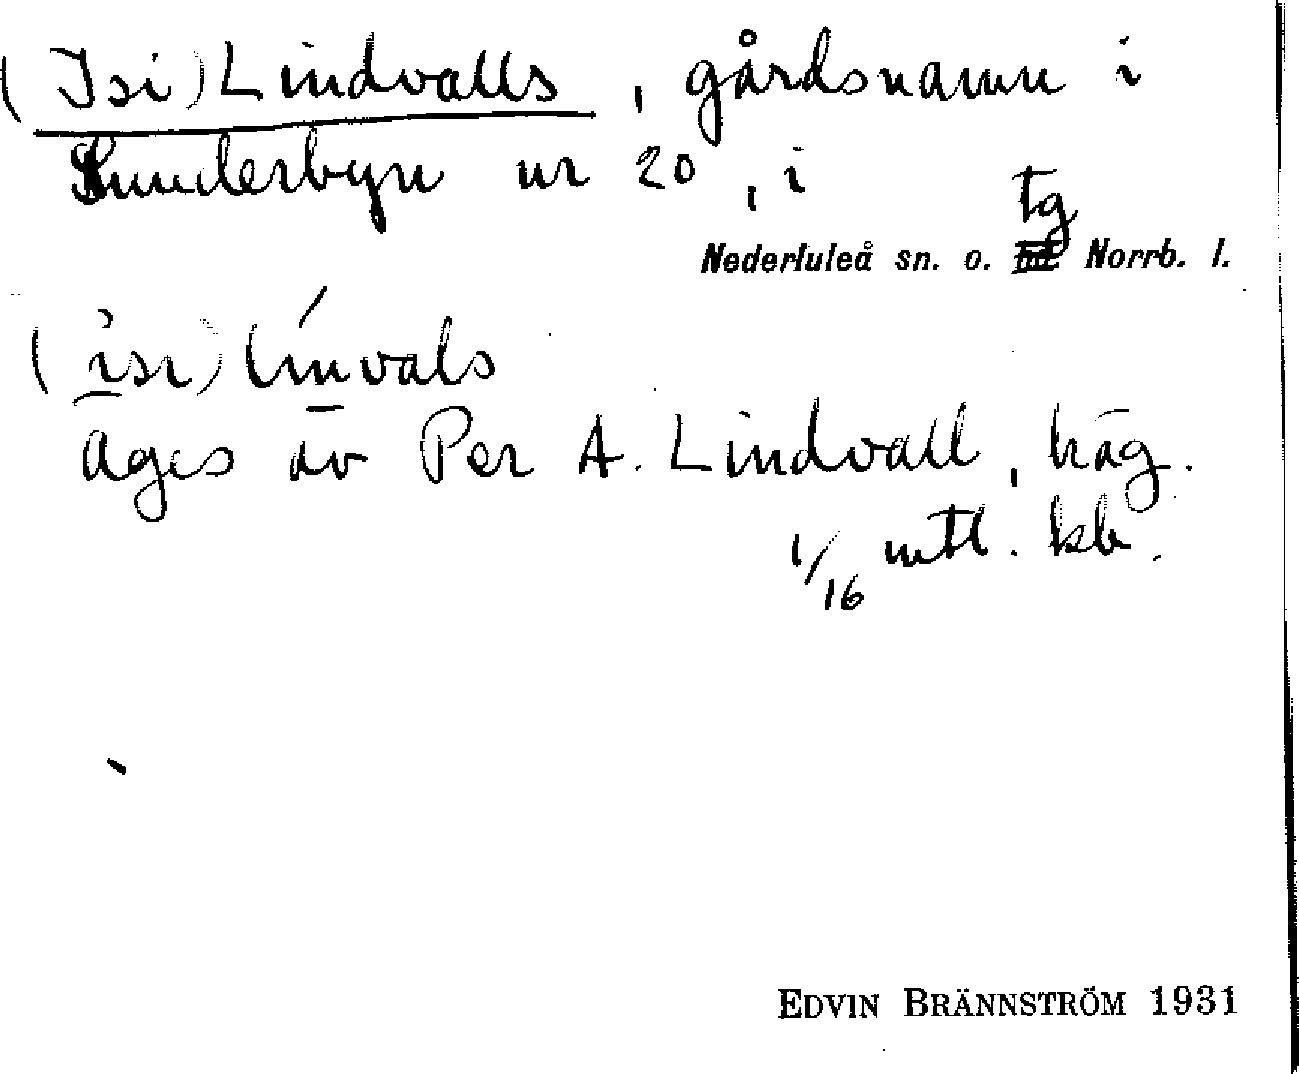 (Isi) Lindvalls, gårdsnamn i
Sunderbyn nr 20, i
tg
Nederluleå sn. o. Norrb. l.
(isi) línvals
Äges av Per A. Lindvall, häg.
1/16 mtl. kb.
EDVIN BRÄNNSTRÖM 1931